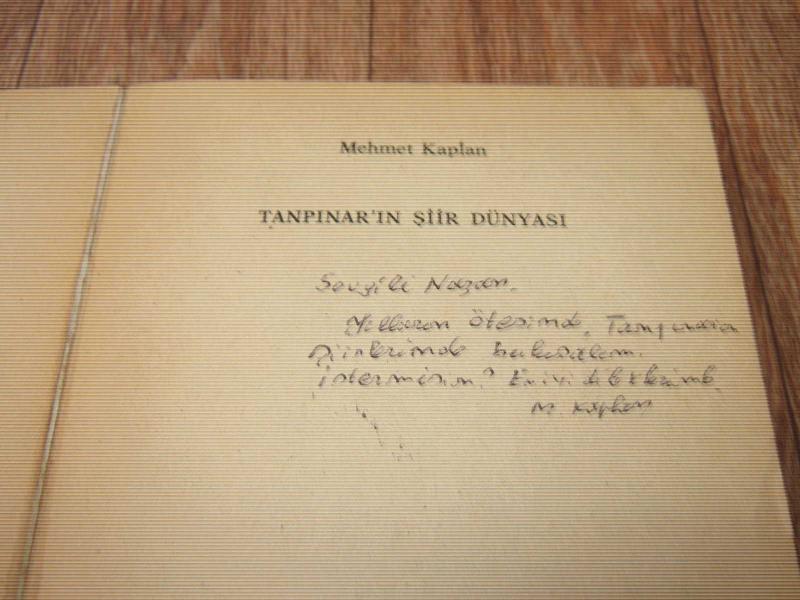 Mehmet Kaplan
TANPINAR'IN ŞİİR DÜNYASI
Sevgili Nazan.
Yılların Ötesinde, Tanpınarın
şiirlerinde buluşalım.
istermisin? En iyi dileklerimle
M. Kaplan